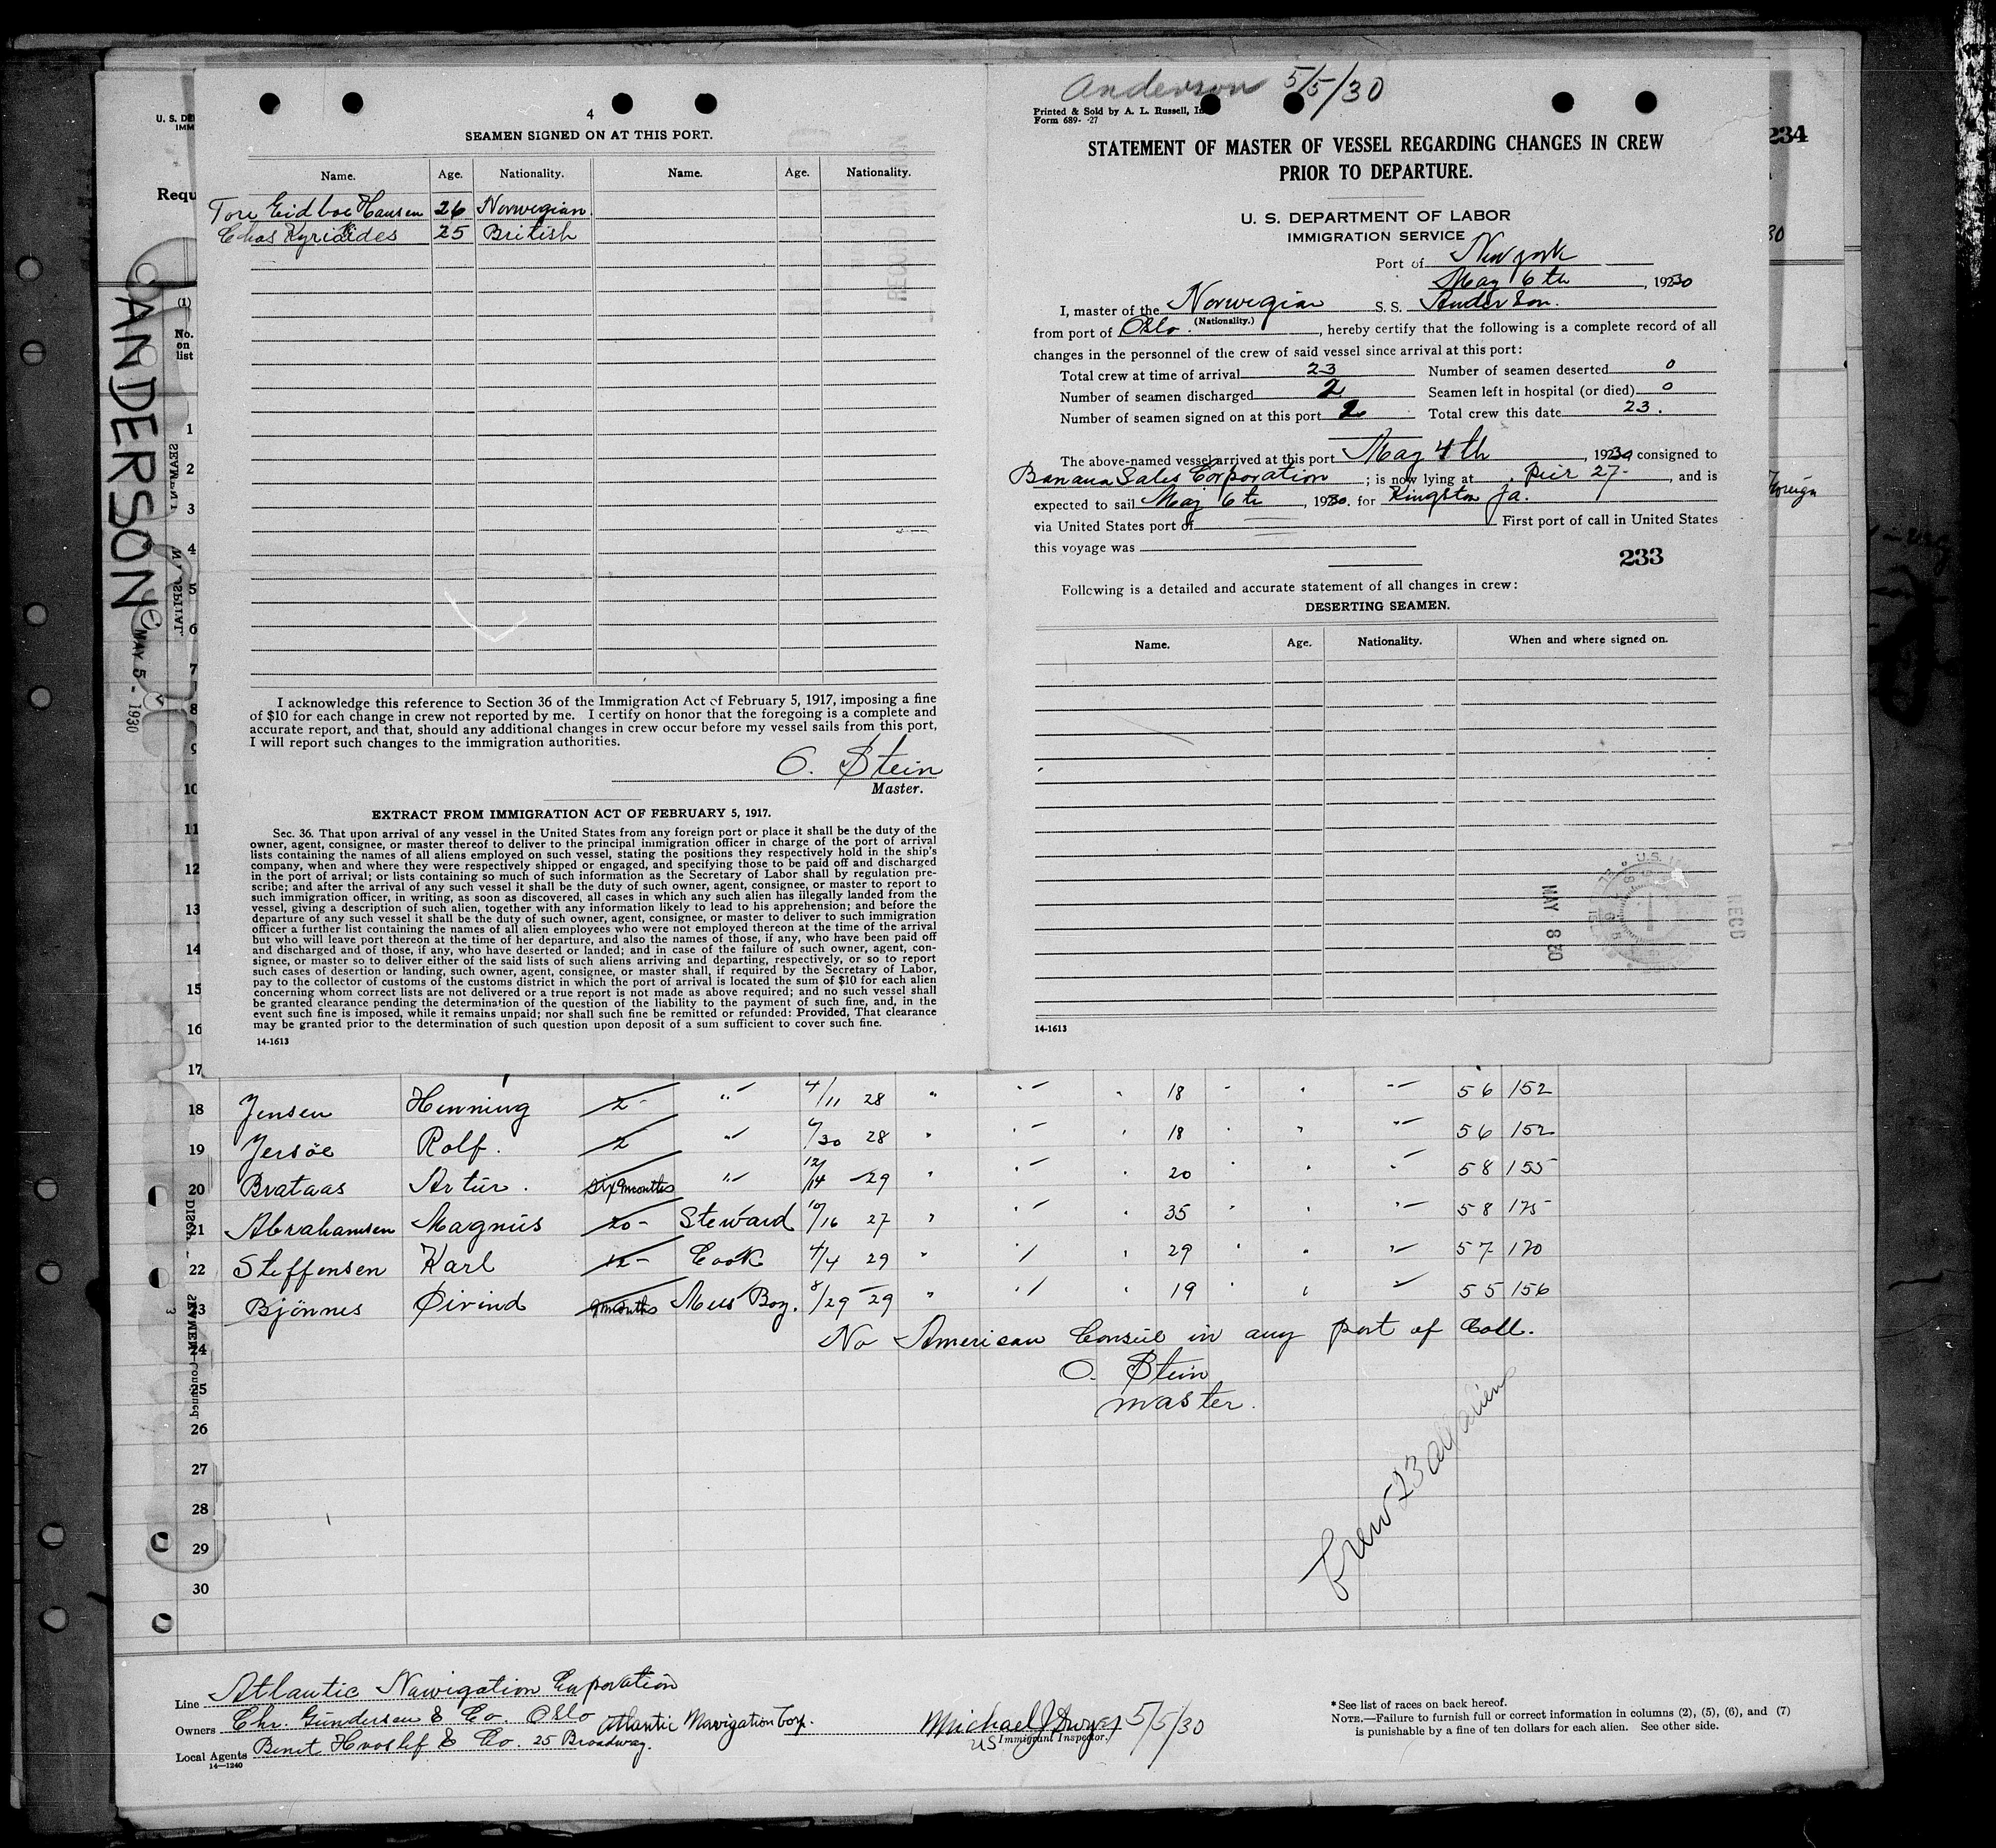 4
SEAMEN SIGNED ON AT THIS PORT.
Name. Age. Nationality. Name. Age. Nationality.
Tore Eidboe Hansen 26 Norwegian
Chas Kyriakides 25 British
I acknowledge this reference to Section 36 of the Immigration Act of February 5, 1917, imposing a fine
of $10 for each change in crew not reported by me. I certify on honor that the foregoing is a complete and
accurate report, and that, should any additional changes in crew occur before my vessel sails from this port,
I will report such changes to the immigration authorities.
O. Stein
Master.
EXTRACT FROM IMMIGRATION ACT OF FEBRUARY 5, 1917.
Sec. 36. That upon arrival of any vessel in the United States from any foreign port or place it shall be the duty of the
owner, agent, consignee, or master thereof to deliver to the principal immigration officer in charge of the port of arrival
lists containing the names of all aliens employed on such vessel, stating the positions they respectively hold in the ship's
company, when and where they were respectively shipped or engaged, and specifying those to be paid off and discharged
in the port of arrival; or lists containing so much of such information as the Secretary of Labor shall by regulation pre-
scribe; and after the arrival of any such vessel it shall be the duty of such owner, agent, consignee, or master to report to
such immigration officer, in writing, as soon as discovered, all cases in which any such alien has illegally landed from the
vessel, giving a description of such alien, together with any information likely to lead to his apprehension; and before the
departure of any such vessel it shall be the duty of such owner, agent, consignee, or master to deliver to such immigration
officer a further list containing the names of all alien employees who were not employed thereon at the time of the arrival
but who will leave port thereon at the time of her departure, and also the names of those, if any, who have been paid off
and discharged and of those, if any, who have deserted or landed; and in case of the failure of such owner, agent, con-
signee, or master so to deliver either of the said lists of such aliens arriving and departing, respectively, or so to report
such cases of desertion or landing, such owner, agent, consignee, or master shall, if required by the Secretary of Labor,
pay to the collector of customs of the customs district in which the port of arrival is located the sum of $10 for each alien
concerning whom correct lists are not delivered or a true report is not made as above required; and no such vessel shall
be granted clearance pending the determination of the question of the liability to the payment of such fine, and, in the
event such fine is imposed, while it remains unpaid; nor shall such fine be remitted or refunded: Provided, That clearance
may be granted prior to the determination of such question upon deposit of a sum sufficient to cover such fine.
14-1613
Anderson 5/5/30
Printed & Sold by A. L. Russell, In
Form 689- -27
STATEMENT OF MASTER OF VESSEL REGARDING CHANGES IN CREW
PRIOR TO DEPARTURE.
U. S. DEPARTMENT OF LABOR
IMMIGRATION SERVICE
Port of New york
May 6th, 1930
I, master of the Norwegian S. S. Anderson.
(Nationality.)
from port of Oslo., hereby certify that the following is a complete record of all
changes in the personnel of the crew of said vessel since arrival at this port:
Total crew at time of arrival 23 Number of seamen deserted 0
Number of seamen discharged 2 Seamen left in hospital (or died) 0
Number of seamen signed on at this port 2 Total crew this date 23.
The above-named vessel arrived at this port May 4th, 1930 consigned to
Banana Sales Corporation; is now lying at Pier 27-, and is
expected to sail May 6th, 1930. for Kingston Ja.
via United States port of First port of call in United States
this voyage was
233
Following is a detailed and accurate statement of all changes in crew:
DESERTING SEAMEN.
Name. Age. Nationality. When and where signed on.
MAY 8 30
RECD
14-1613
234
U. S. DE
IMM
Requ
(1)
No.
on
list
ANDERSON
MAY 5 - 1930
1
2
3
4
5
6
7
8
9
10
11
12
13
14
15
16
17
18 Jensen Henning 2 - " 4/11 28 " " " 18 " " " 56 152
19 Jersöe Rolf. 2 " 6/30 28 " " " 18 " " " 56 152
20 Brataas Artur. six months " 12/14 -29 " " " 20 " " " 58 155
21 Abrahamsen Magnus 20- Steward 10/16 27 " " " 35 " " " 58 175
22 Steffensen Karl 12- Cook 4/4 29 " " " 29 " " " 57 170
23 Bjönnes Øivind 9 months Mess Boy. 8/29 -29 " " " 19 " " " 55 156
24 No American Consul in any port of Call.
O. Stein
25 master.
26
27
28
29
30
Crew 23 all aliens
Line Atlantic Navigation Corporation
Owners Chr. Gundersen & Co. Oslo Atlantic Navigation Corp.
Local Agents Benet Hvoslef & Co. 25 Broadway.
14—1240
Michael J Dwyer 5/5/30
US Immigrant Inspector.
* See list of races on back hereof.
NOTE.—Failure to furnish full or correct information in columns (2), (5), (6), and (7)
is punishable by a fine of ten dollars for each alien. See other side.